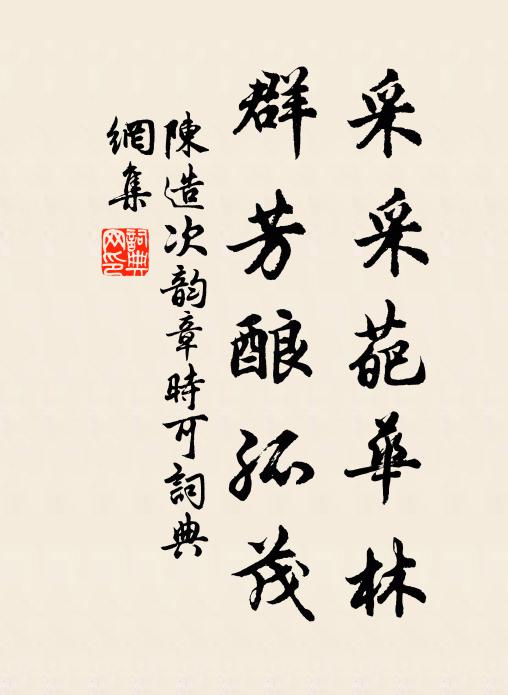 采采葩华林
群芳酿孤茂
陳造次韵章時可詞典
網集
詞典
网印